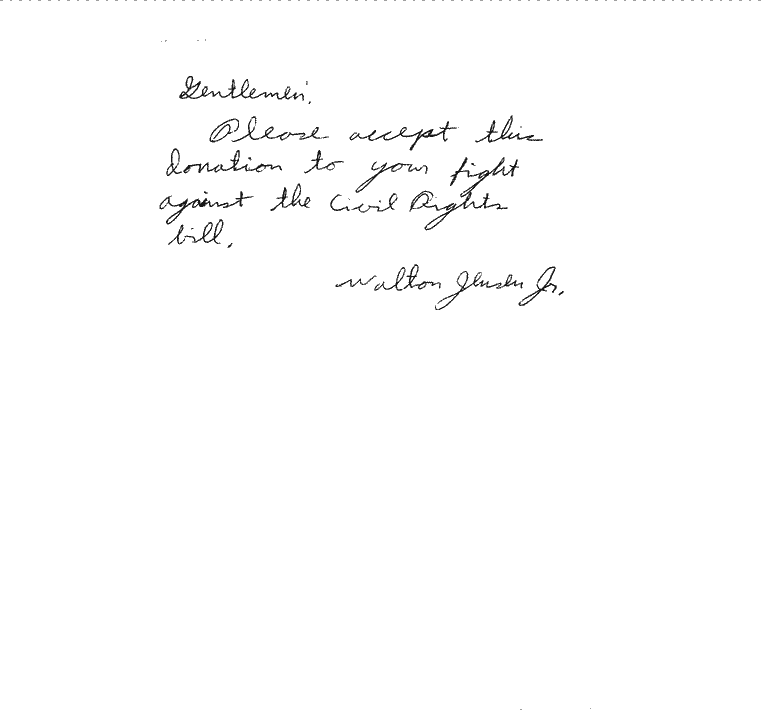 Gentlemen:
Please accept this
donation to your fight
against the Civil Rights
bill.
Walton Jensen Jr.